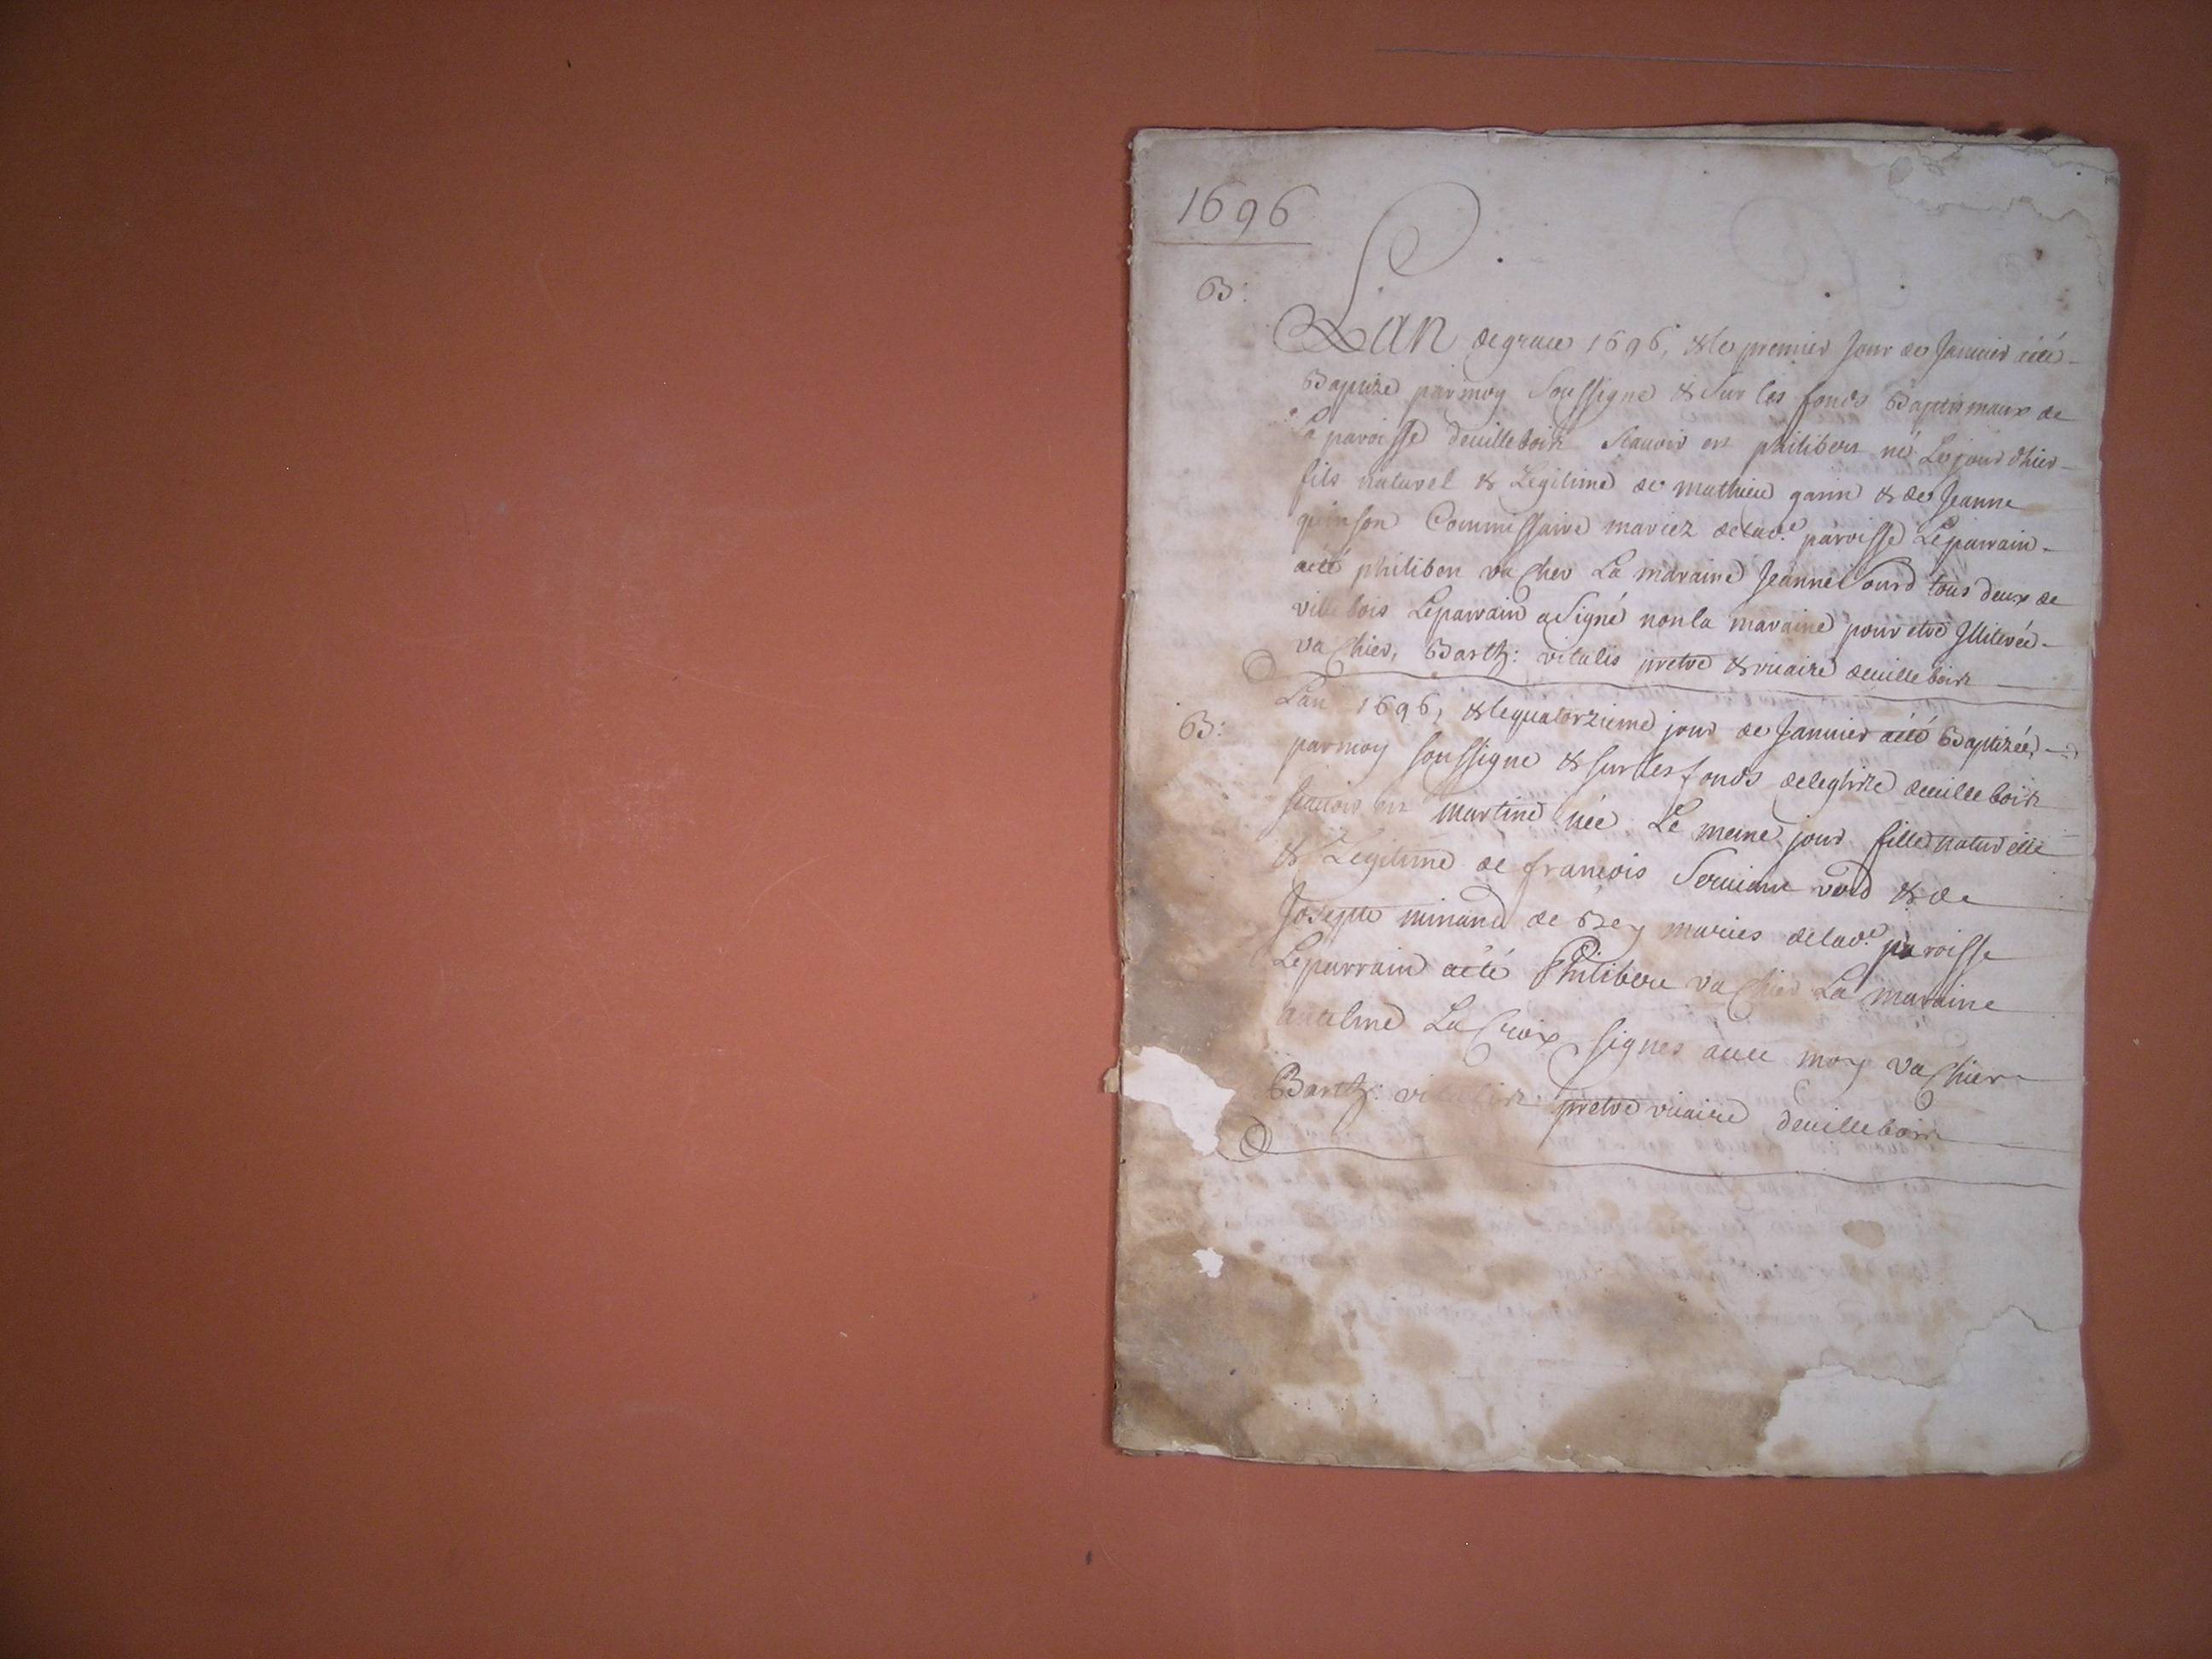 1696
B:
Lan de grace 1696, & le premier jour de Janvier aété
Baptizé parmoy Soussigné & Sur les fonds Baptismaux de
la paroisse devillebois Scavoir est philibert né Le jour d'hier
fils naturel & Legitime de mathieu garin & de Jeanne
quinson Commissaire mariez delad.e paroisse Leparrain
aété philibert vachier La maraine Jeanne Sourd tous deux de
villebois Leparrain a Signé non la maraine pour etre Illiterée
vachier, Barth: vitalis pretre & vicaire devillebois
B:
Lan 1696, & le quatorzieme jour de Janvier aété Baptizée,
parmoy soussigné & sur les fonds deleglize devillebois
scavoir est martine née Le meme jour fille naturelle
& Legitime de francois & de
Josepte minand de Bey mariés delad.e paroisse
Leparrain aété Philibert vachier La maraine
antelme La Croix signes avec moy vachier
Barth: vitalis pretre vicaire devillebois